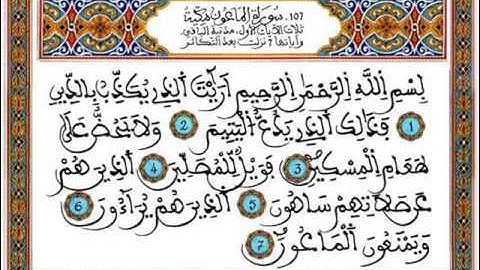 107. سورة الماعون مكية
ثلاث الآيات الأول، مدنية الباقي
وآياتها 7 نزلت بعد التكاثر
بِسْمِ اللَّهِ الرَّحْمَٰنِ الرَّحِيمِ أَرَٰيْتَ الَّذِي يُكَذِّبُ بِالدِّينِ
1 فَذَٰلِكَ الَّذِي يَدُعُّ الْيَتِيمَ 2 وَلَا يَحُضُّ عَلَىٰ
طَعَامِ الْمِسْكِينِ 3 فَوَيْلٌ لِّلْمُصَلِّينَ 4 الَّذِينَ هُمْ
عَن صَلَاتِهِمْ سَاهُونَ 5 الَّذِينَ هُمْ يُرَآءُونَ 6
وَيَمْنَعُونَ الْمَاعُونَ 7